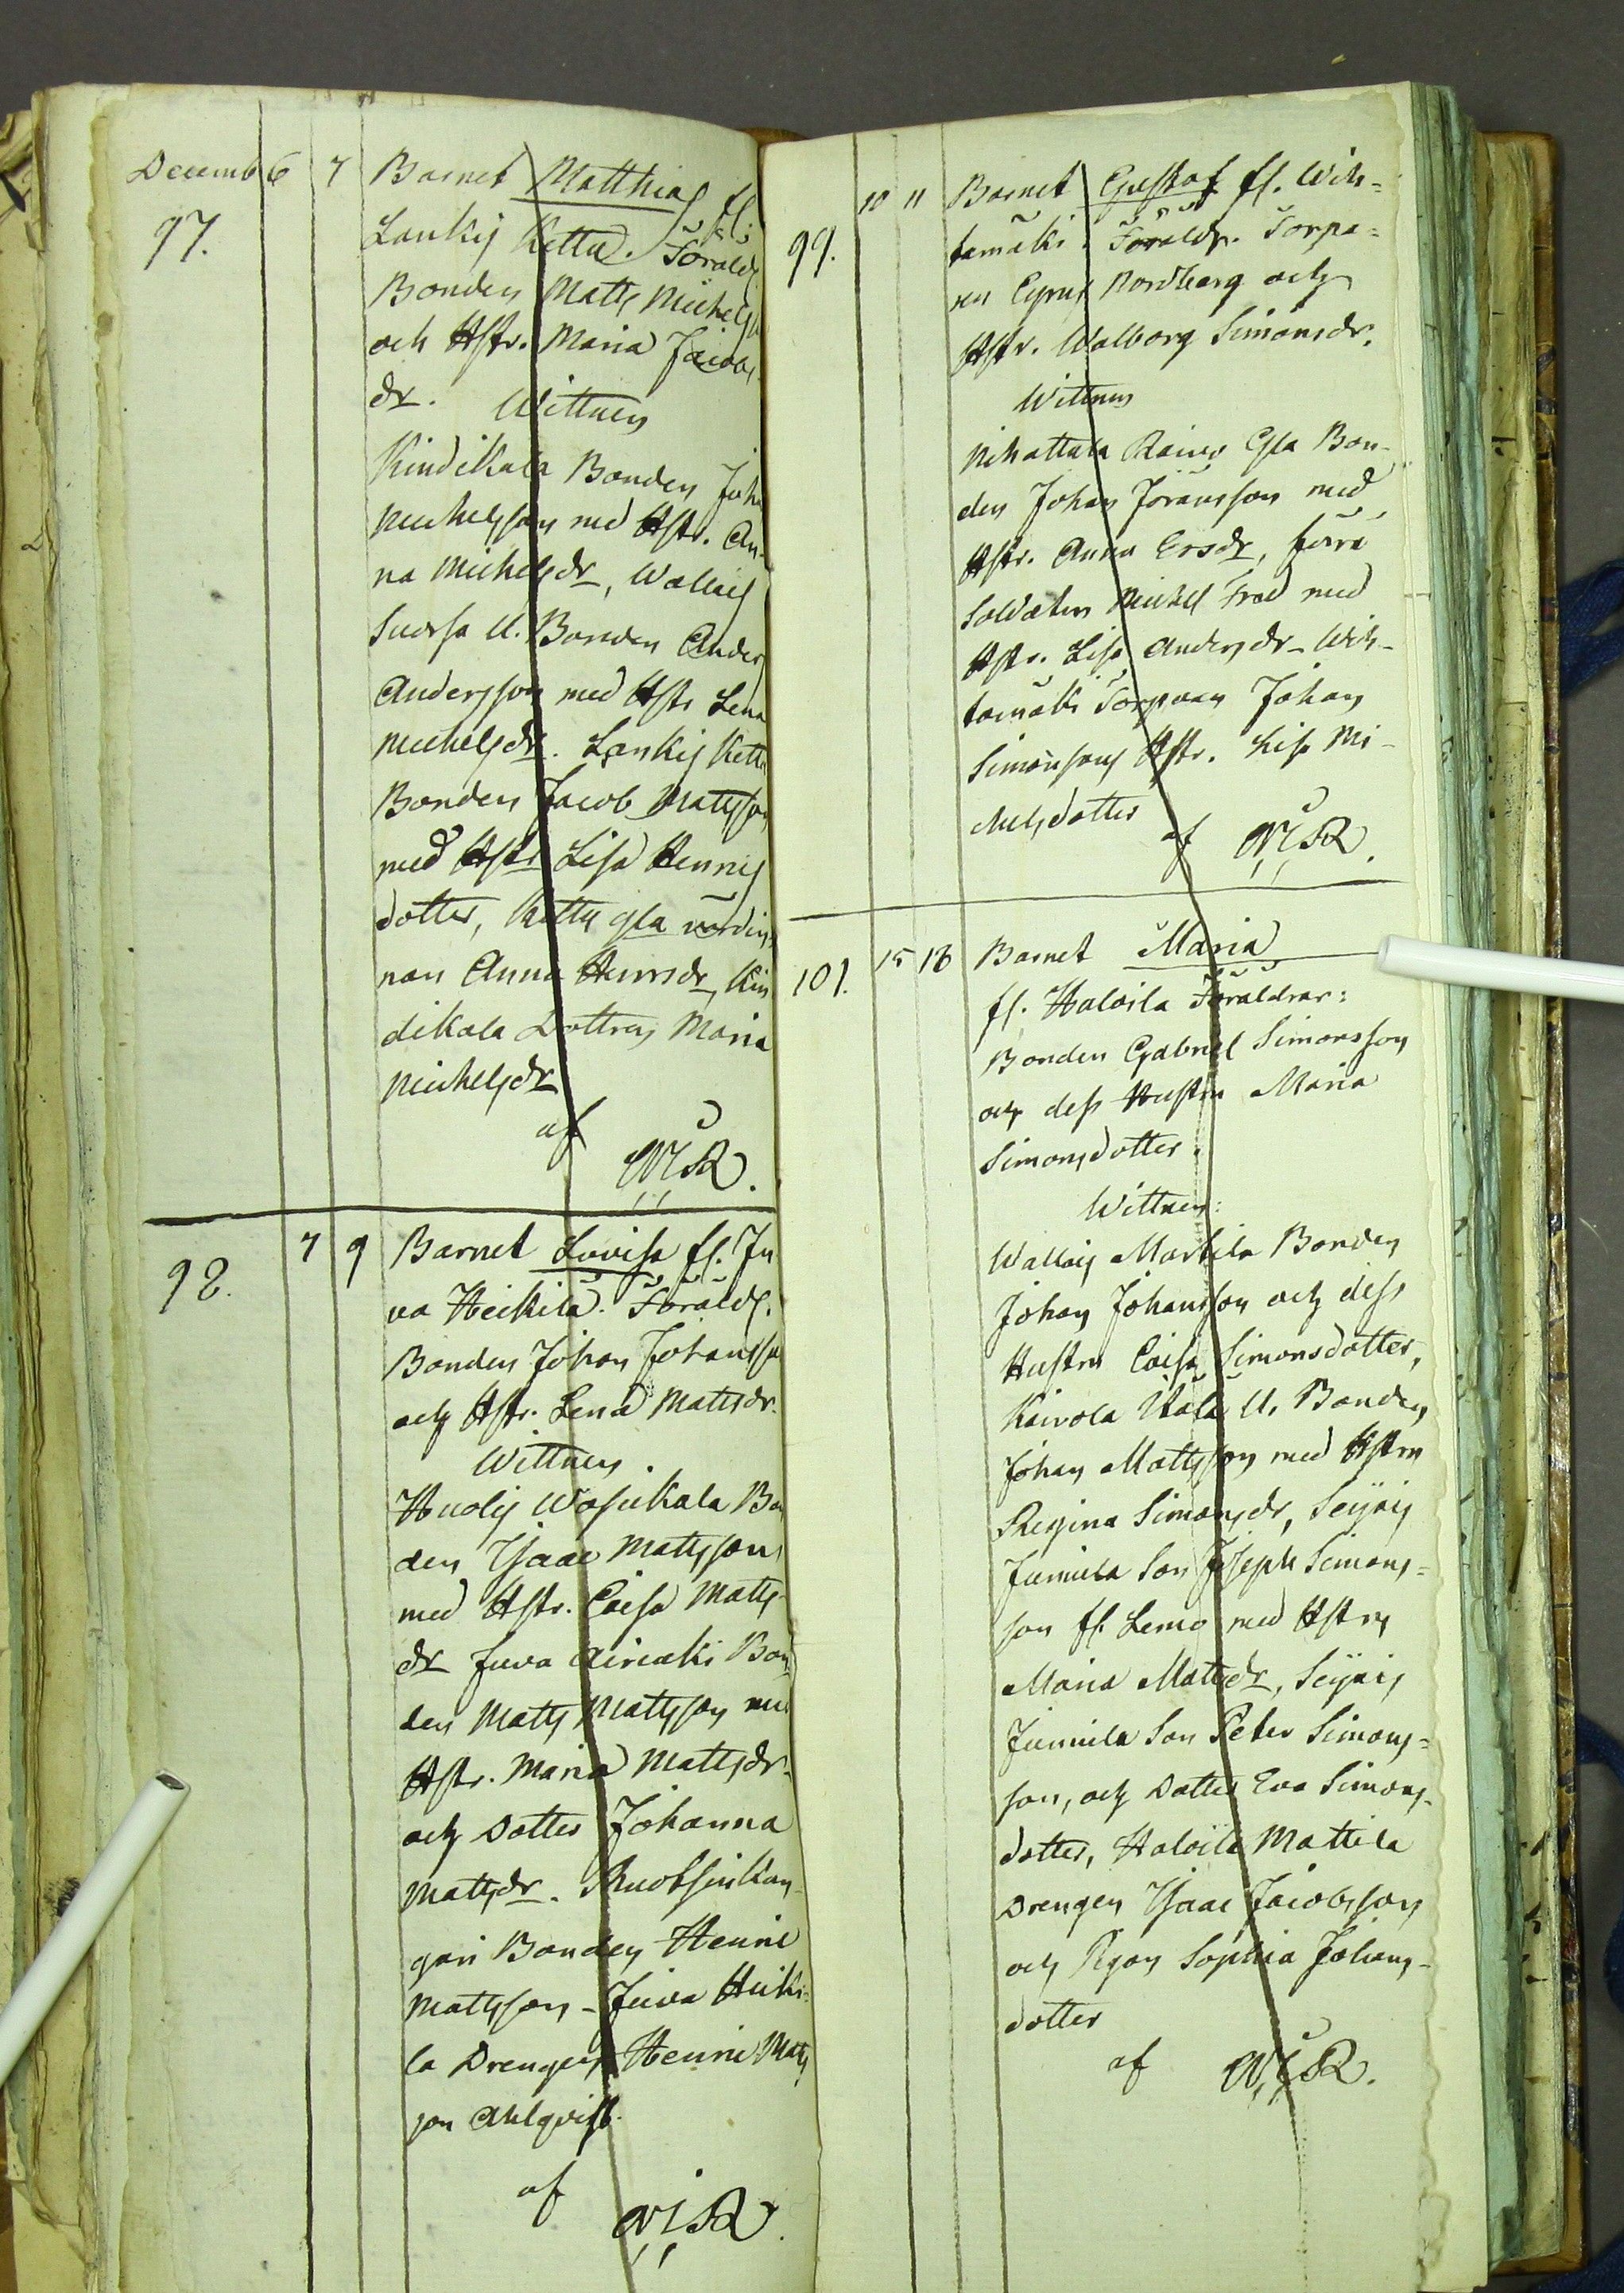 Decemb 6 7 Barnet Matthias fl.
97.
Lankis Kettu. Föräldr.
Bonden Matts Michelss
och Hstr. Maria Jacobs
dr. Wittnen
Kindikala Bonden Joh
Michelsson med Hstr. An-
na Michelsdr, Wallais
Suorsa U. Bonden Anders
Andersson med Hstr Lena
Michelsdr. Lankis Kett
Bonden Jacob Mattsson
med Hstr Lisa Henrics
dotter, Kettu gla värdin
nan Anna Henrsdr, Kin
dikala Dottren Maria
Michelsdr
af WSR.
7 9 Barnet Lovisa fl. Ju
98.
va Heikilä. Föräldr.
Bonden Johan Johansso
och Hstr. Lena Mattsdr.
Wittnen.
Huolis Wäsikala Bon
den Isaac Mattsson
med Hstr. Caisa Matts-
dr Juva Bon
den Matts Mattsson med
Hstr. Maria Mattsdr.
och Dotter Johanna
Mattsdr. Ruotsinkan-
gari Bonden Henric
Mattsson - Juva Heiki-
la Drengen Henric Matts
son Ahlqvist.
af WSR.
10 11 Barnet Gustaf fl. Wih-
99.
tamäki. Föräldr. Torpa-
ren Cyrus Nordberg och
Hstr. Walborg Simonsdr.
Wittnen
Nihattula Raino Gla Bon-
den Johan Jöransson med
Hstr. Anna Ersdr, förra
Soldaten Michel Trad med
Hstr. Lisa Andersdr - Wih-
tamäki Torparen Johan
Simonsons Hstr. Lisa Mi-
chelsdotter
af WSR.
101. 15 18 Barnet Maria
fl. Haloila Föräldrar:
Bonden Gabriel Simonsson
och dess Hustru Maria
Simonsdotter.
Wittnen:
Wallais Martila Bonden
Johan Johansson och dess
Hustru Caisa Simonsdotter,
Kaivola Itala U. Bonden
Johan Mattsson med Hstru
Regina Simonsdr, Seijais
Jumila Son Joseph Simons-
son fl. Lemo med Hstru
Maria Mattsdr, Seijais
Jumila Son Peter Simons-
son, och Dotter Eva Simons-
dotter, Haloila Mattila
Drengen Isaac Jacobsson
och Pigan Sophia Johans-
dotter
af WSR.